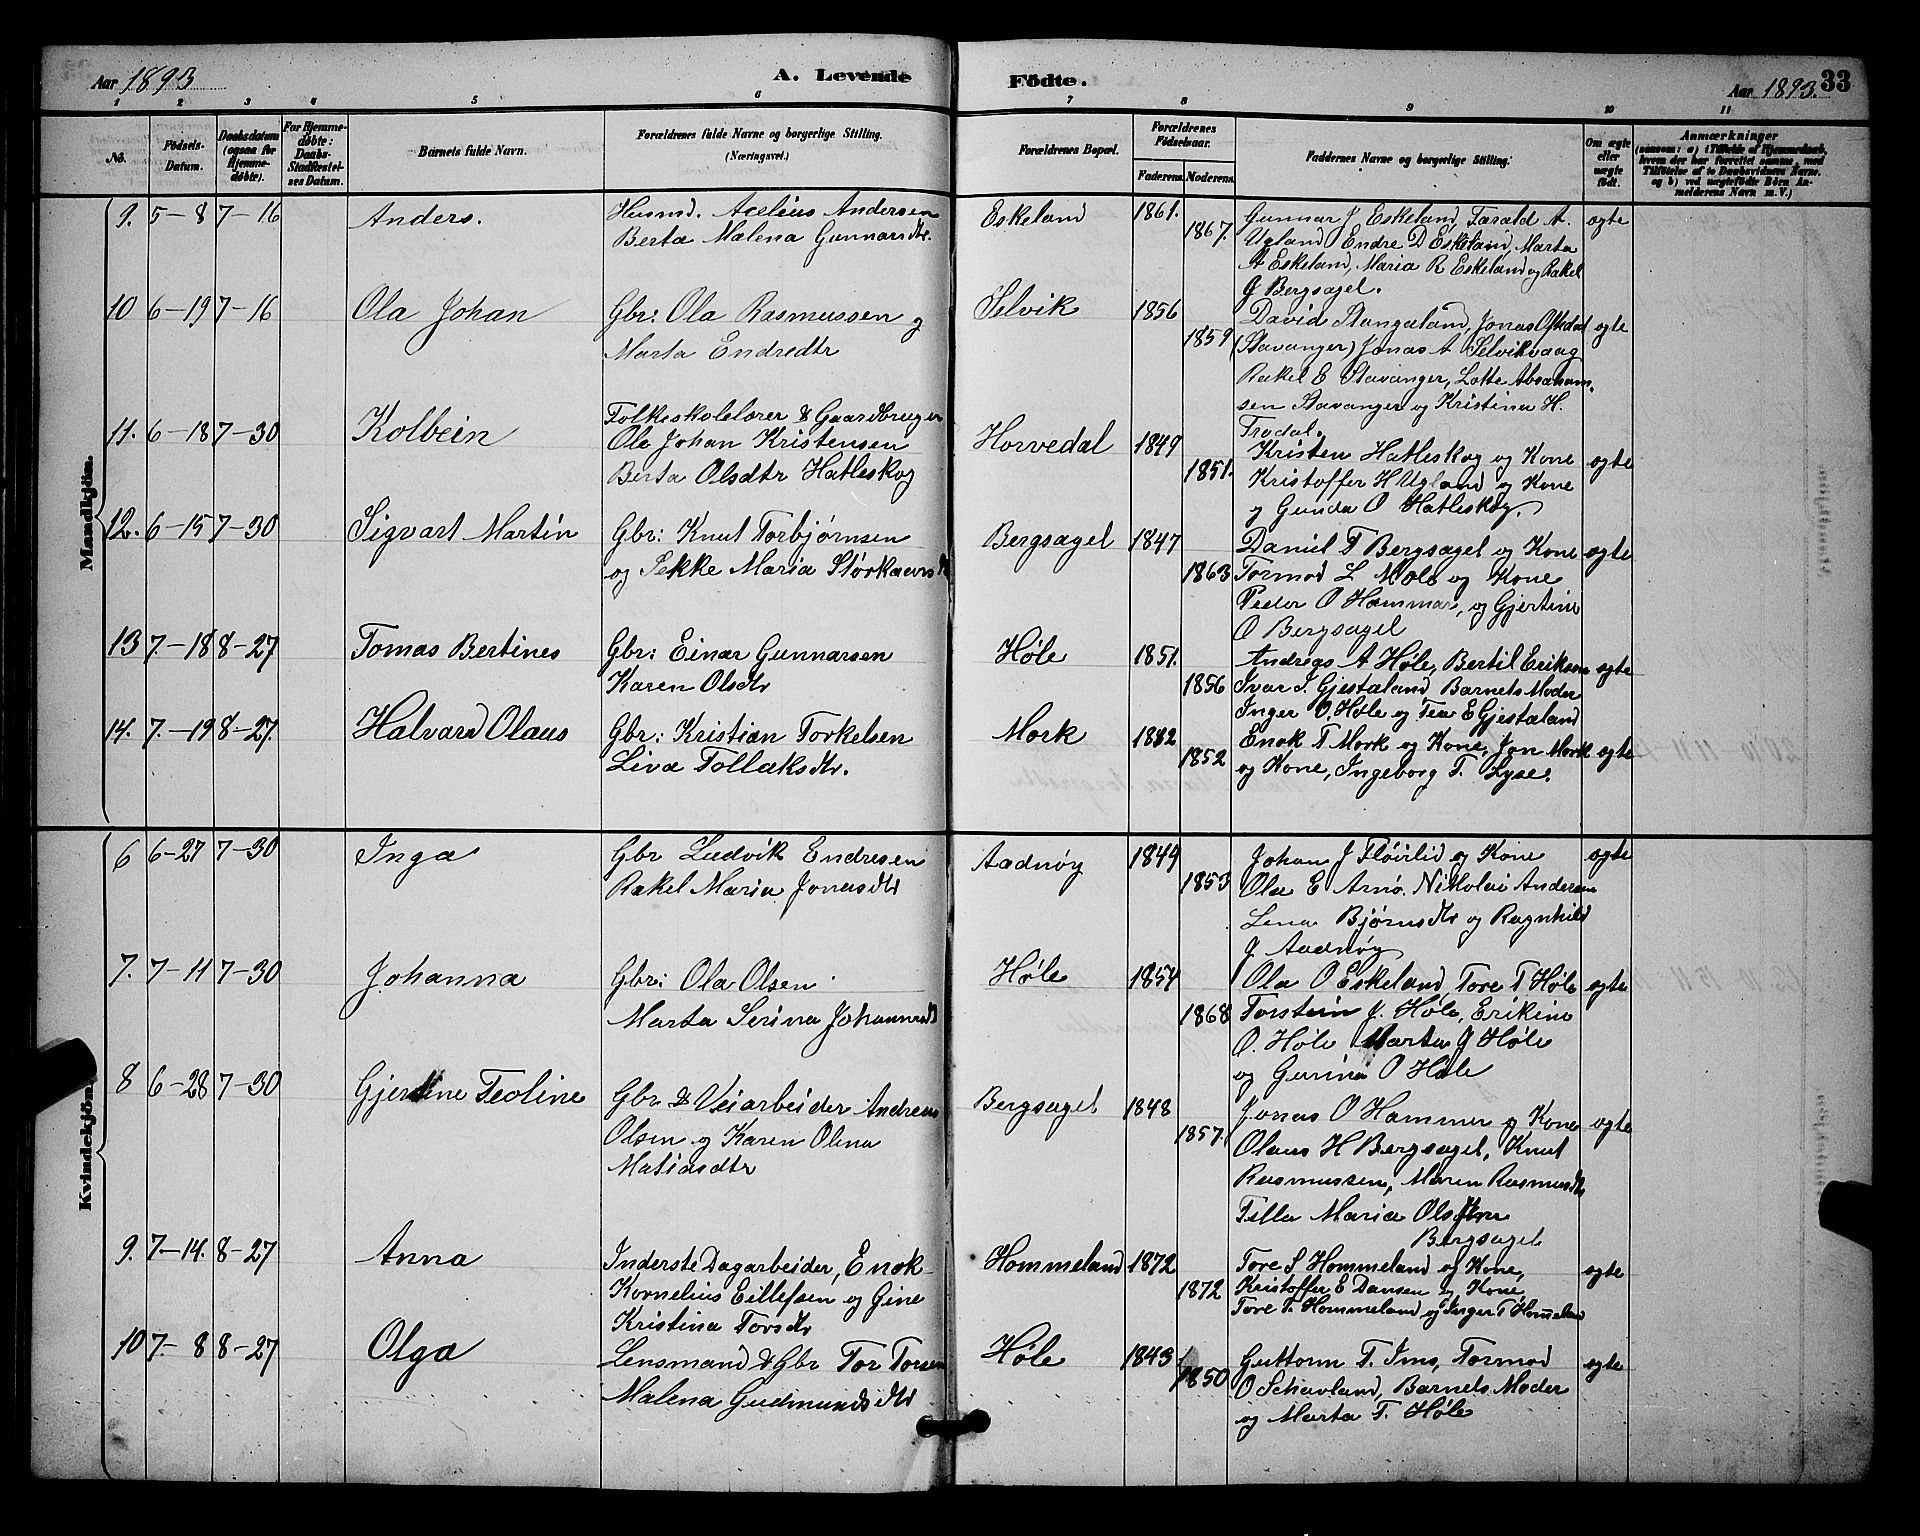 Aar 1893 A. Levende Födte. Aar 1893. 33
1 2 3 4 5 6 7 8 9 10 11
No.
Födsels-Datum.
Daabsdatum (ogsaa for Hjemmedøbte).
For Hjemmedøbte: Daabs-Stadfæstelses Datum.
Barnets fulde Navn.
Forældrenes fulde Navne og borgerlige Stilling. (Næringsvei.)
Forældrenes Bopæl.
Forældrenes Födselsaar.
Faderens. Moderens.
Faddernes Navne og borgerlige Stilling.
Om ægte eller uægte født.
Anmærkninger
Mandkjön.
9. 5-8 7-16 Anders. Husmd. Acelius Andersen Eskeland 1861. Gunnar J Eskeland, Tarald A. ægte
Berta Malena Gunnarsdtr. 1867. Ugland Endre D Eskeland, Marta
A Eskeland, Maria R Eskeland og Rakel
G Bergsagel.
10 6-19 7-16 Ola Johan Gbr: Ola Rasmussen og Selvik 1856 David Stangeland, Jonas Oftedal ægte
Marta Endredtr 1859 (Stavanger) Jonas A Selvikvaag
Rakel E Stavanger, Lotte Absalom-
sen Stavanger og Kristina H.
Frodal.
11. 6-18 7-30 Kolbein Folkeskolelærer & Gaardbruger
Ole Johan Kristensen Horvedal 1849 Kristen Hatleskog og Kone ægte
Berta Olsdtr Hatleskog 1851. Kristoffer H Ugland og Kone
og Gunda O Hatleskog.
12. 6-15 7-30 Sigvart Martin Gbr: Knut Torbjørnsen Bergsagel 1847 Daniel T Bergsagel og Kone ægte
og Sekke Maria Størkaersdtr 1863 Tormod L Mole og Kone
Peder O Hammar, og Gjertine
O Bergsagel
13 7-18 8-27 Tomas Bertines Gbr: Einar Gunnarsen Høle 1851. Andreas A Høle, Bertil Eriksen ægte
Karen Olsdtr 1856 Ivar I. Gjestaland, Barnets Moder
Inger O. Høle og Tea E Gjestaland
14. 7-19 8-27. Halvard Olaus Gbr: Kristian Torkelsen Mork 1842 Enok T Mork og Kone, Jon Mork ægte
Liva Tollaksdtr. 1852 og Kone, Ingeborg T. Lyse.
Kvindekjön.
6 6-27 7-30 Inga Gbr Ludvik Endresen Aadnøy 1849 Johan J Fløirlid og Kone ægte
Rakel Maria Jonasdtr 1853 Ola E Arnø. Nikolai Andersen
Lena Bjørnsdtr og Ragnhild
J Aadnøy
7. 7-11 7-30 Johanna Gbr: Ola Olsen Høle 1854 Ola O Eskeland, Tore T Høle ægte
Marta Serina Johannesdtr 1868 Torstein J. Høle, Erikine
O. Høle Marta J Høle
og Gurina O Høle
8 6-28 7-30 Gjertine Teoline Gbr & Veiarbeider Andreas Bergsagel 1848 Jonas O Hammer og Kone ægte
Olsen og Karen Olena 1857. Olaus H Bergsagel, Knut
Matiasdtr Rasmussen, Maren Rasmusdtr
Tilla Maria Olsdtr
Bergsagel
9. 7-14. 8-27 Anna Inderste Dagarbeider, Enok Hommeland 1872 Tore S Hommeland og Kone, ægte
Kornelius Eillefsen og Gine 1872 Kristoffer E Dansen og Kone,
Kristina Torsdtr Tore T. Hommeland og Inger T Hommeland
10 7-8 8-27 Olga Lensmand & Gbr Tor Torsen Høle 1843 Guttorm T. Ims, Tormod ægte
Malena Gudmundsdtr 1850 O Schavland, Barnets Moder
og Marta T. Høle